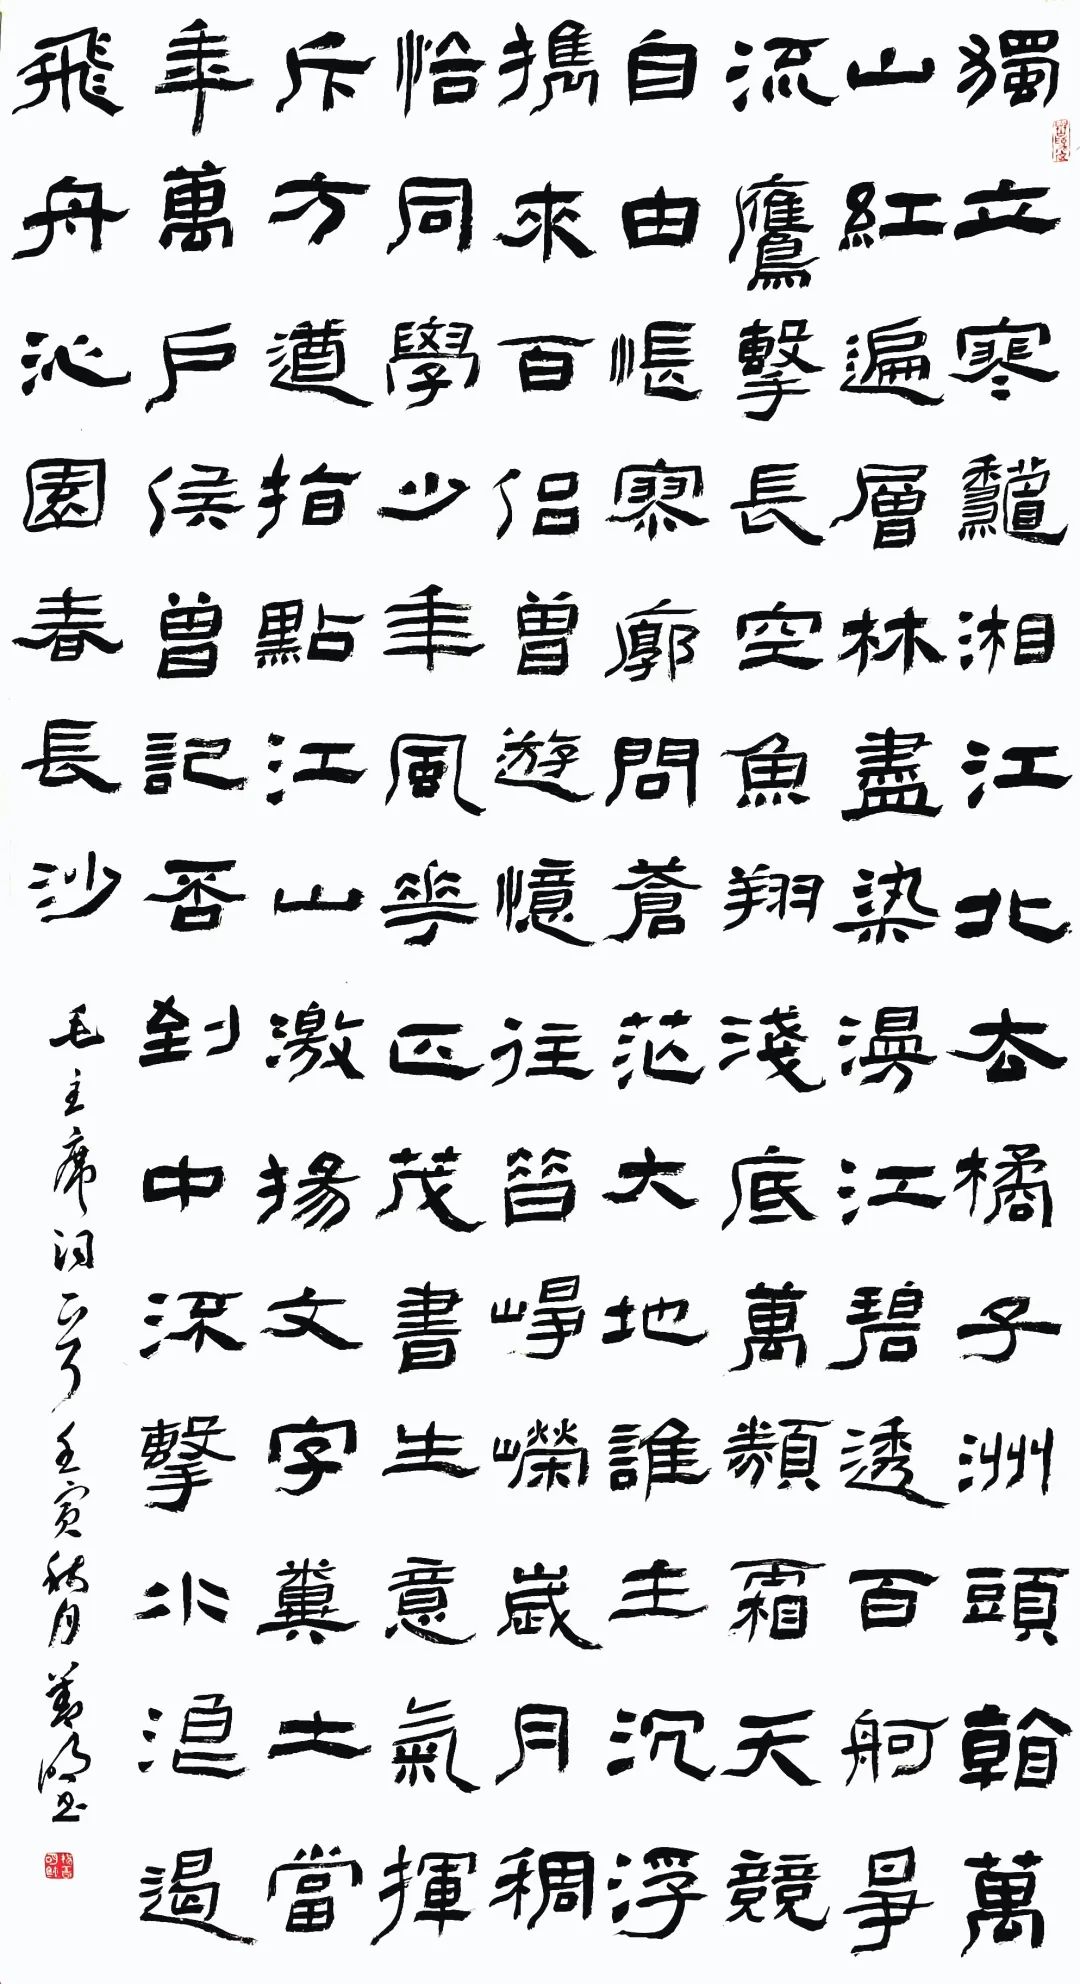 獨立寒龝湘江北去橘子洲頭看萬
山紅遍層林盡染漫江碧透百舸爭
流鷹擊長空魚翔淺底萬類霜天競
自由悵寥廓問蒼茫大地誰主沉浮
攜來百侶曾遊憶往昔崢嶸歲月稠
恰同學少年風華正茂書生意氣揮
斥方遒指點江山激揚文字糞土當
年萬戶侯曾記否到中流擊水浪遏
飛舟沁園春長沙
毛主席詞一首壬寅秋月善明書